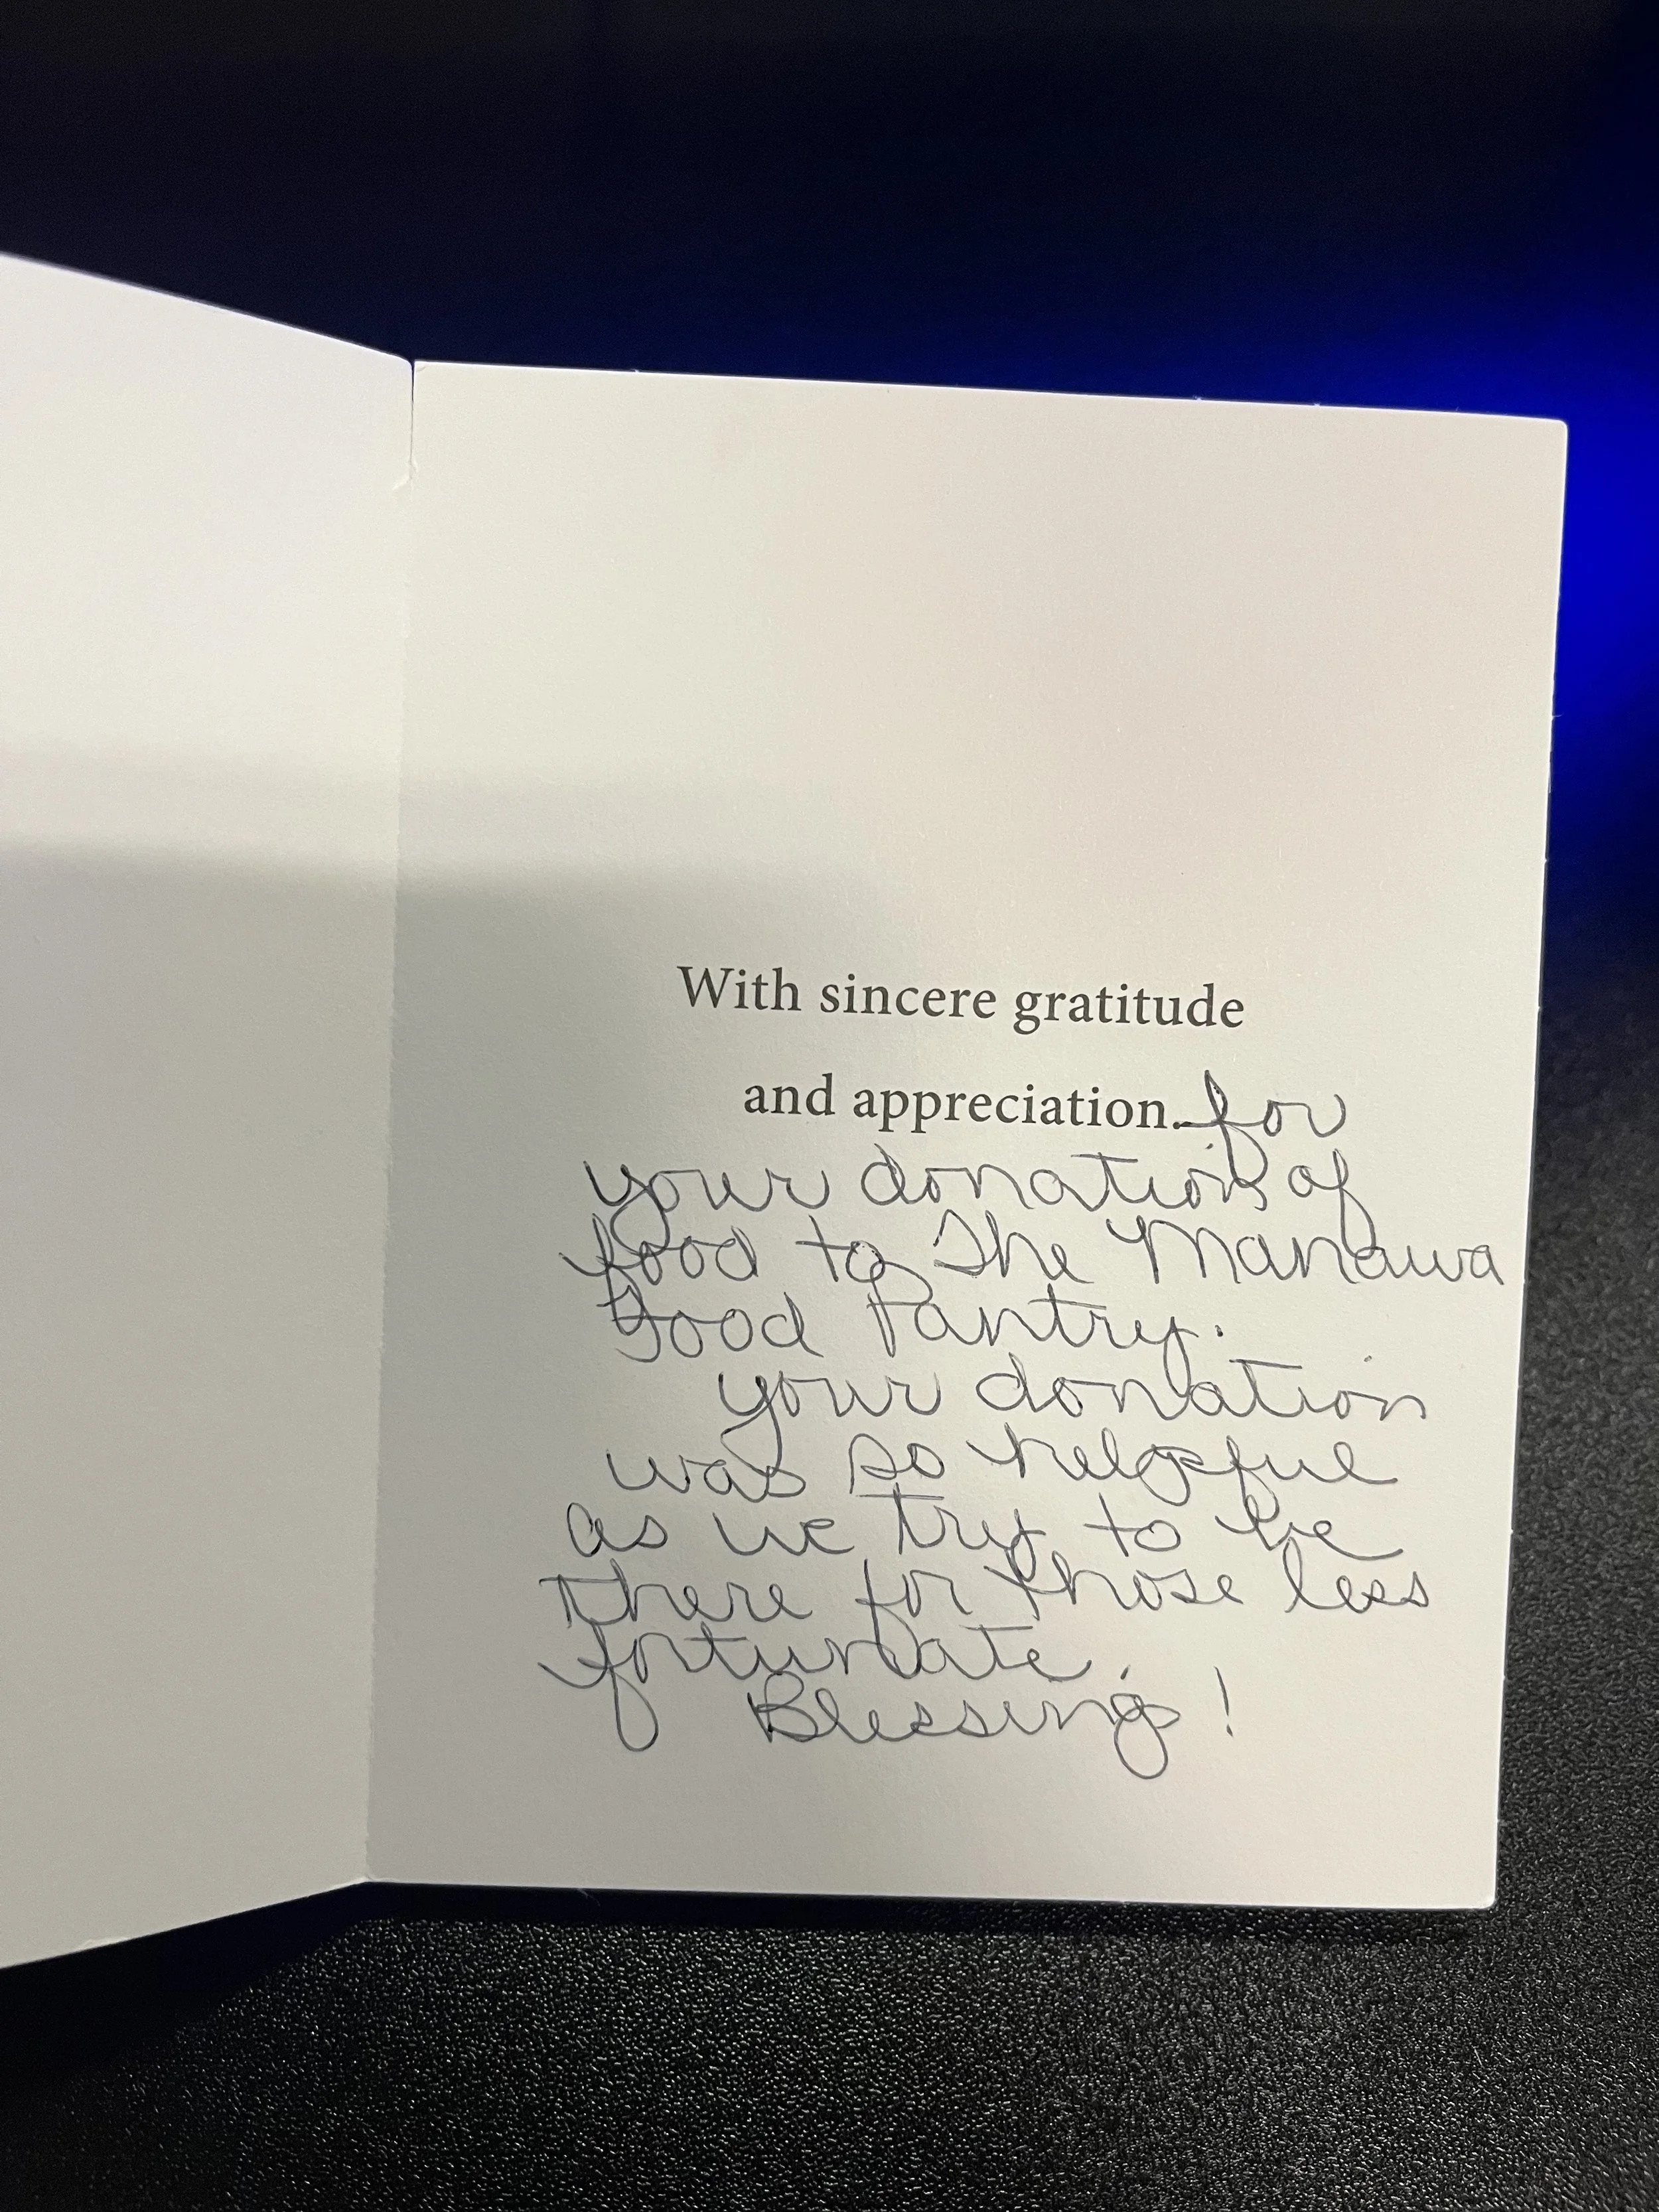 With sincere gratitude
and appreciation. for
your donation of
food to The Manawa
Food Pantry.
your donation
was so helpful
as we try to be
there for those less
fortunate.
Blessings!